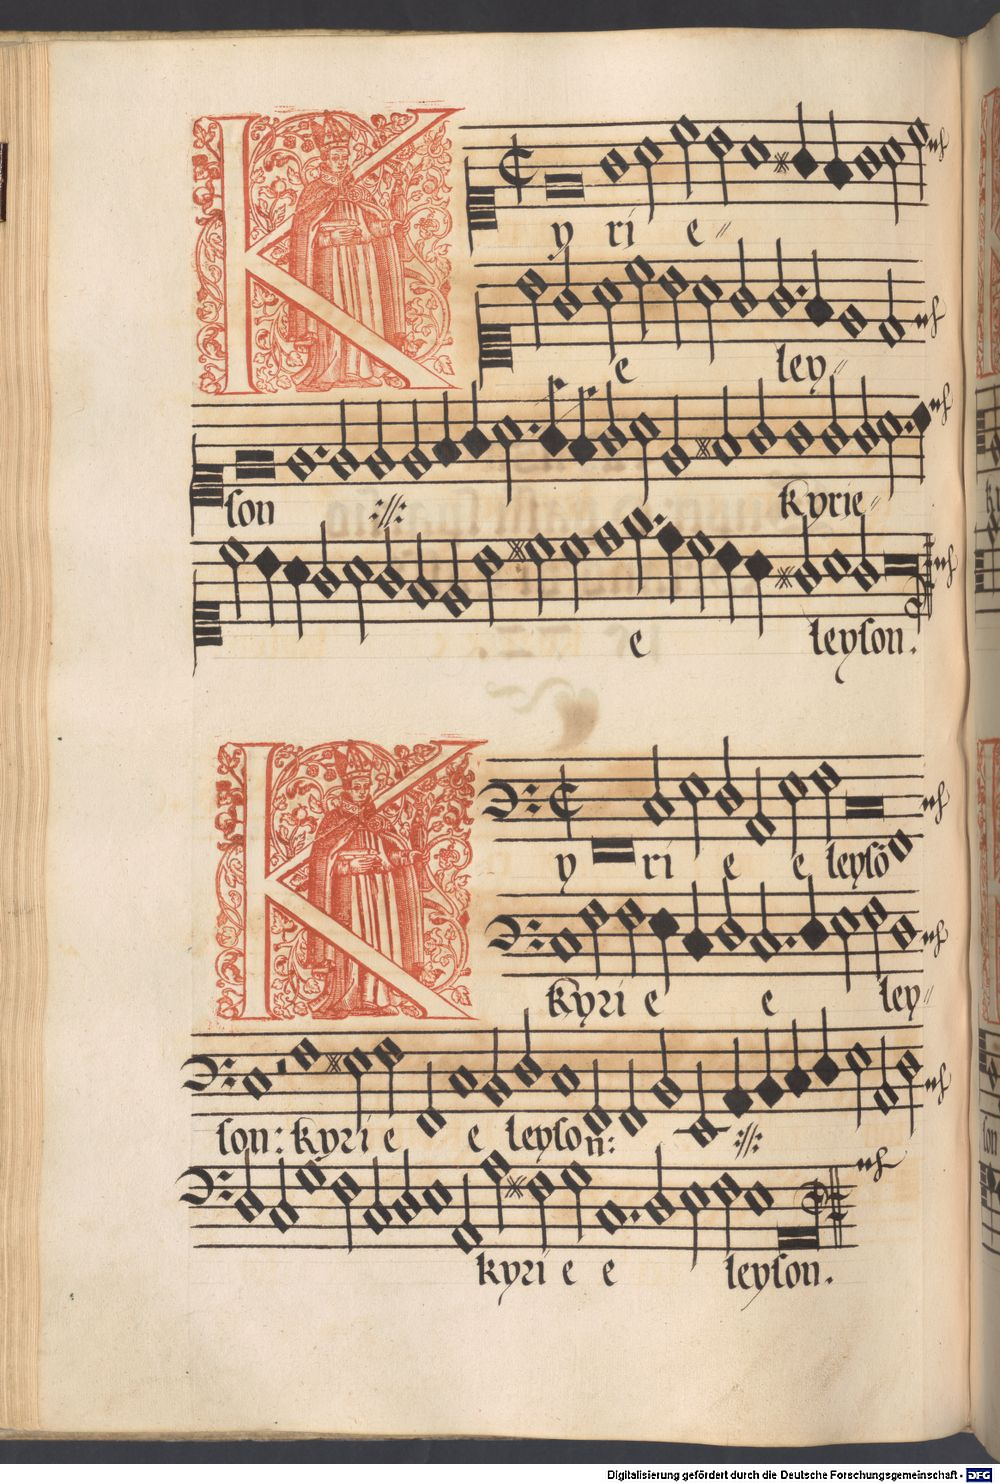 K yri e〃
e ley〃
son ://: kyrie〃
e leyson.
K y ri e e leysō
kyri e e ley〃
son: kyri e e leyson: ://:
kyri e e leyson.
Digitalisierung gefördert durch die Deutsche Forschungsgemeinschaft - DFG